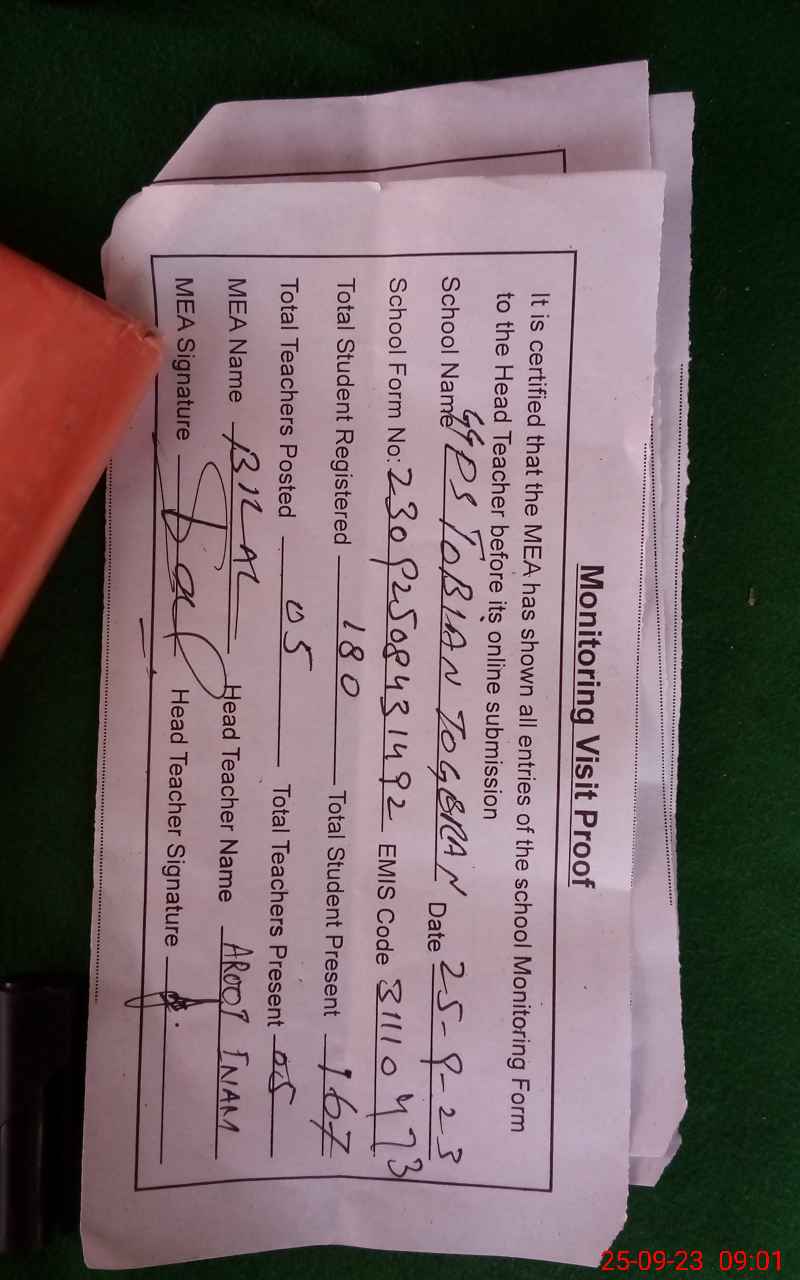 Monitoring Visit Proof
It is certified that the MEA has shown all entries of the school Monitoring Form
to the Head Teacher before its online submission
School Name GGPS TOBIAN TOGERAN Date 25-9-23
School Form No: 23092508431492 EMIS Code 31110473
Total Student Registered 180 Total Student Present 167
Total Teachers Posted 05 Total Teachers Present 05
MEA Name BILAL Head Teacher Name AROOJ INAM
MEA Signature Head Teacher Signature
25-09-23 09:01